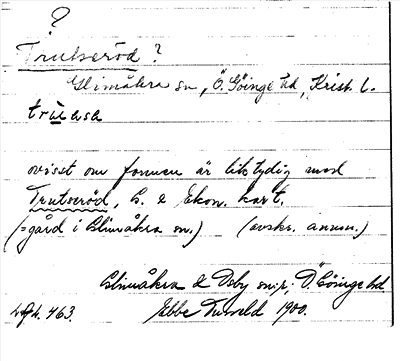 ?
Trutseröd?
Glimåkra sn, Ö. Göinge hd, Krist. l.
trùasa
ovisst om formen är liktydig med
Trutseröd, G. & Ekon. kart.
(=gård i Glimåkra sn.) (avskr. anmn.)
Glimåkra & Osby snr; Ö. Göinge hd
Ebbe Tuneld 1900.
463.